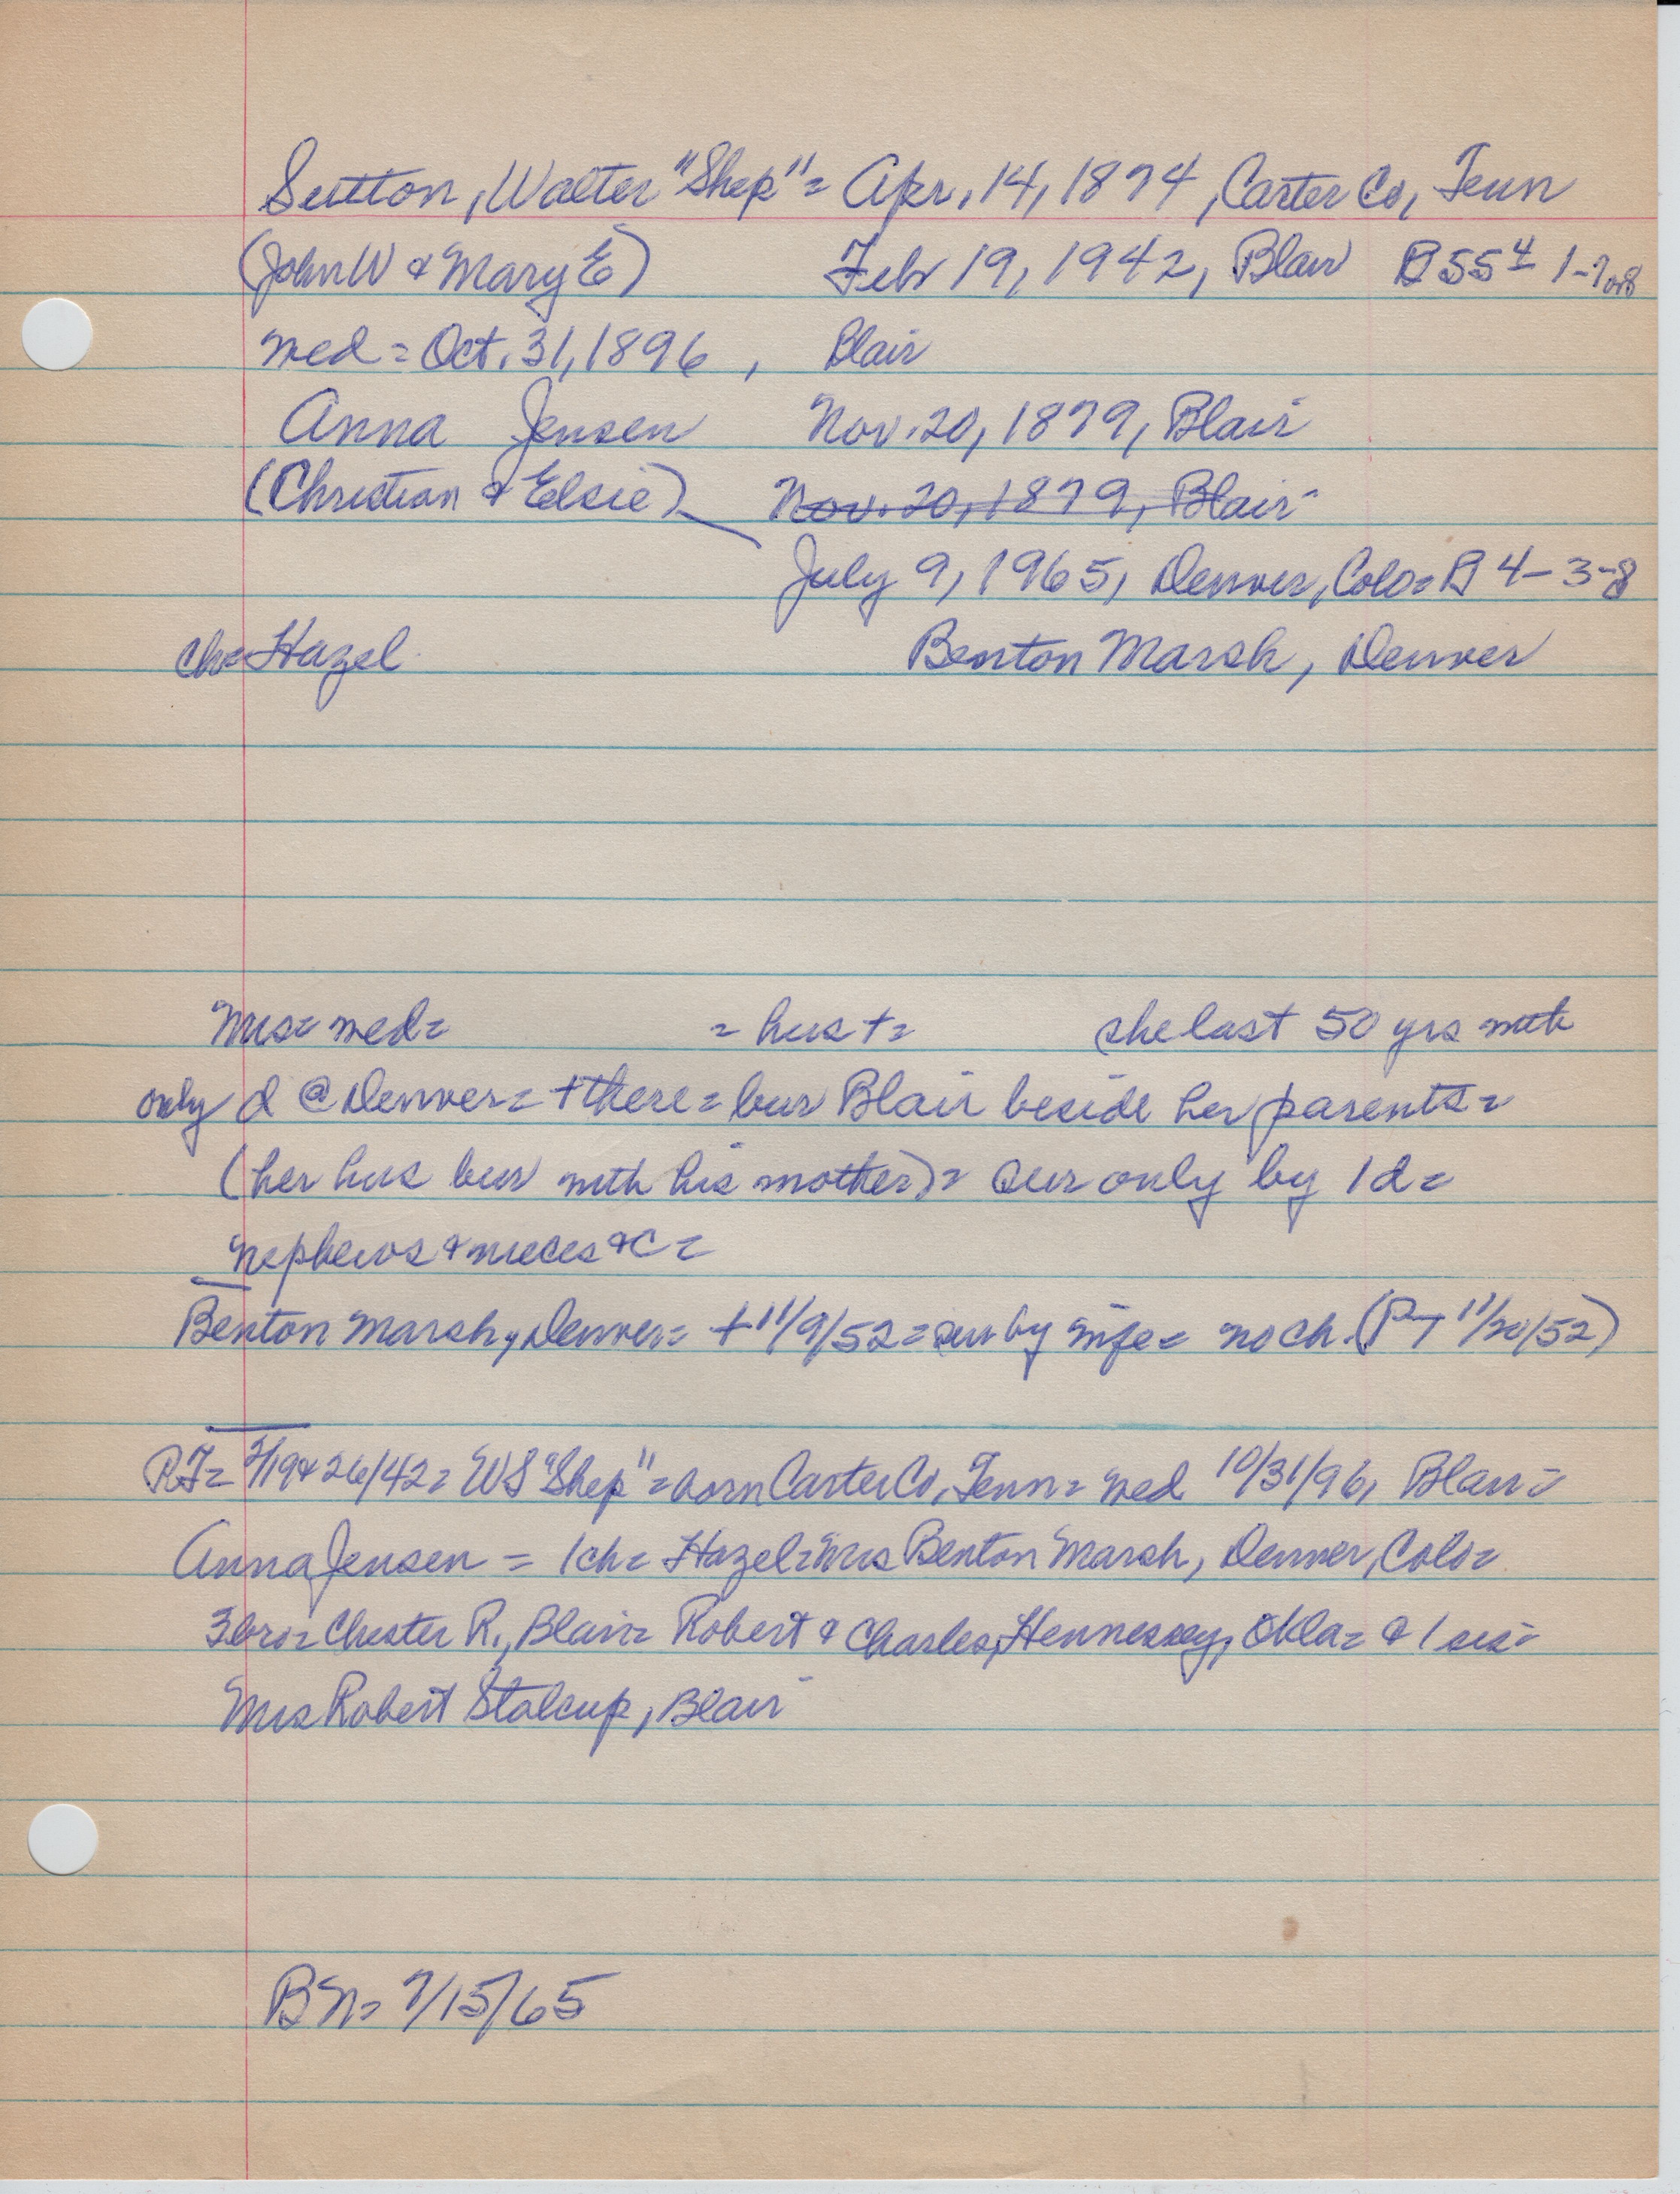 Sutton, Walter "Shep" = Apr. 14, 1874, Carter Co, Tenn
(John W & Mary E) Febr 19, 1942, Blair B 55 4 1-7or8
wed = Oct. 31, 1896, Blair
Anna Jensen Nov. 20, 1879, Blair
(Christian & Elsie) Nov. 20, 1879, Blair
July 9, 1965, Denver, Colo = B 4-3-8
ch = Hazel Benton Marsh, Denver
Mrs = wed = = hus + = she last 50 yrs with
only d @ Denver = + there = bur Blair beside her parents =
(her hus bur with his mother) = sur only by 1 d =
nephews & nieces &c =
Benton Marsh, Denver = + 11/9/52 = sur by wife = no ch. (PT 11/20/52)
PT = 2/19 & 26/42 = WS "Shep" = born Carter Co, Tenn = wed 10/31/96, Blair =
Anna Jensen = 1 ch = Hazel = Mrs Benton Marsh, Denver, Colo =
3 bro = Chester R., Blair = Robert & Charles, Hennessey, Okla = & 1 sis =
Mrs Robert Stalcup, Blair
BN = 7/15/65